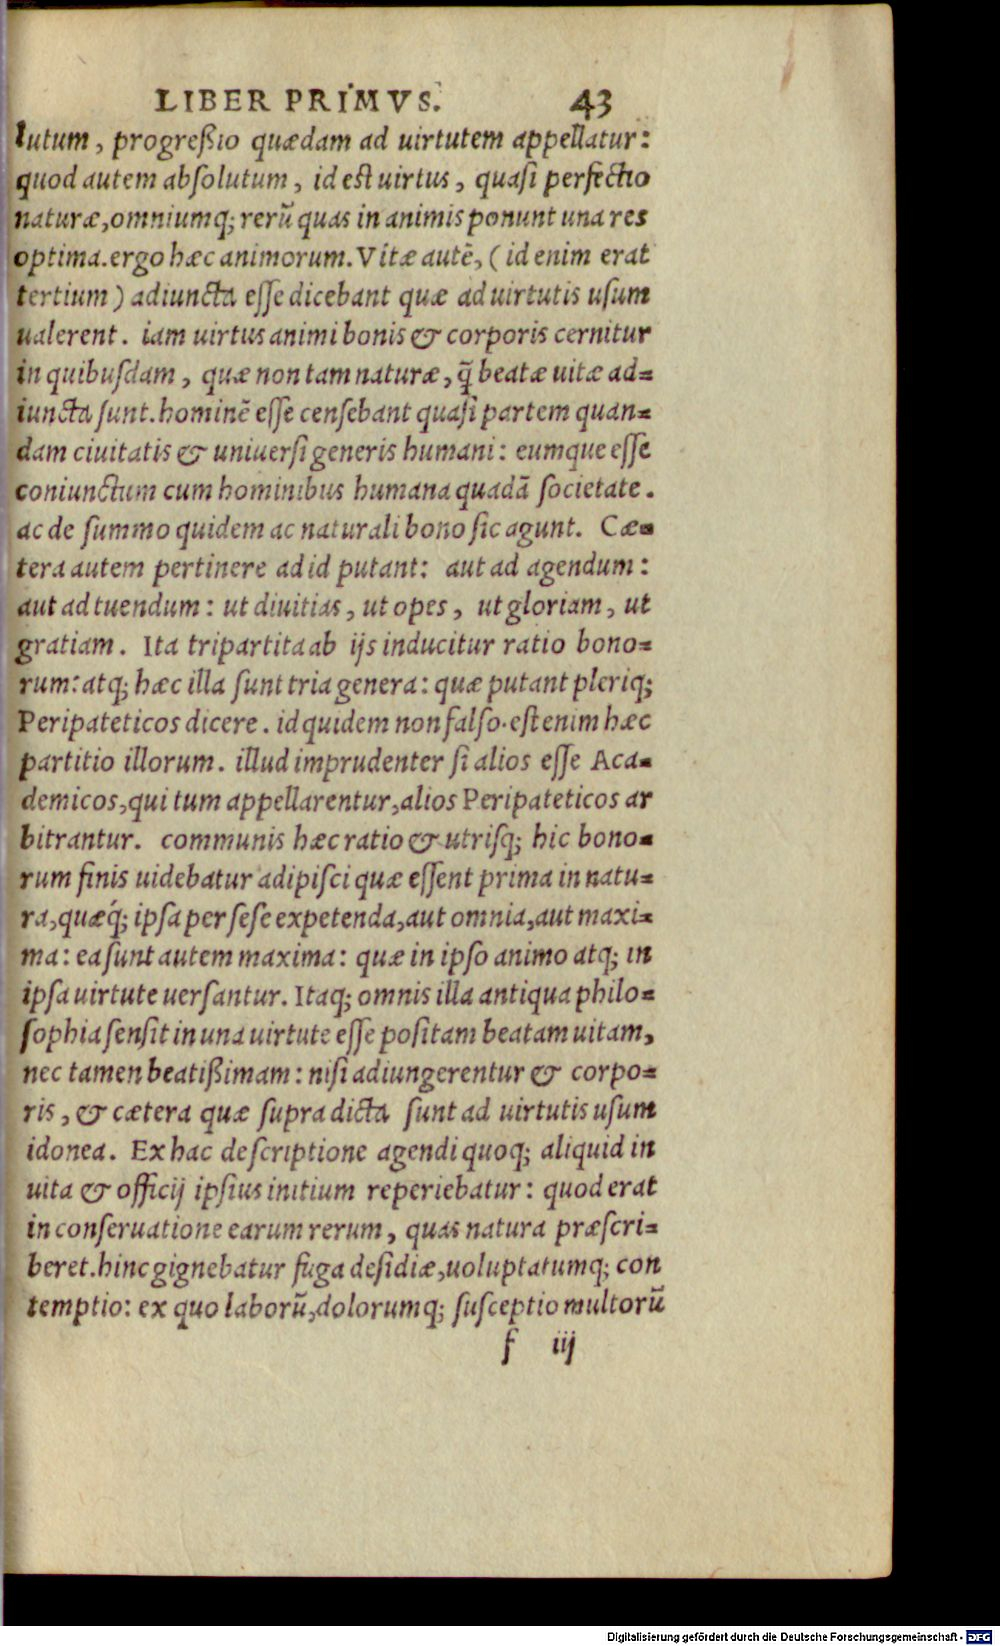 LIBER PRIMVS. 43
lutum, progreßio quædam ad uirtutem appellatur:
quod autem abſolutum, id eſt uirtus, quaſi perfectio
naturæ,omniumq; rerũ quas in animis ponunt una res
optima.ergo hæc animorum. Vitæ autẽ, (id enim erat
tertium) adiuncta eſſe dicebant quæ ad uirtutis uſum
ualerent. iam uirtus animi bonis & corporis cernitur
in quibuſdam, quæ non tam naturæ, q̃ beatæ uitæ ad=
iuncta ſunt. hominẽ eſſe cenſebant quaſi partem quan=
dam ciuitatis & uniuerſi generis humani: eumque eſſe
coniunctum cum hominibus humana quadã ſocietate.
ac de ſummo quidem ac naturali bono ſic agunt. Cæ=
tera autem pertinere ad id putant: aut ad agendum:
aut ad tuendum: ut diuitias, ut opes, ut gloriam, ut
gratiam. Ita tripartita ab ijs inducitur ratio bono=
rum: atq; hæc illa ſunt tria genera: quæ putant pleriq;
Peripateticos dicere. id quidem non falſo. eſt enim hæc
partitio illorum. illud imprudenter ſi alios eſſe Aca=
demicos,qui tum appellarentur,alios Peripateticos ar
bitrantur. communis hæc ratio & utriſq; hic bono=
rum finis uidebatur adipiſci quæ eſſent prima in natu=
ra,quæq́; ipſa per ſeſe expetenda,aut omnia,aut maxi=
ma: ea ſunt autem maxima: quæ in ipſo animo atq; in
ipſa uirtute uerſantur. Itaq; omnis illa antiqua philo=
ſophia ſenſit in una uirtute eſſe poſitam beatam uitam,
nec tamen beatißimam: niſi adiungerentur & corpo=
ris, & cætera quæ ſupra dicta ſunt ad uirtutis uſum
idonea. Ex hac deſcriptione agendi quoq; aliquid in
uita & officij ipſius initium reperiebatur: quod erat
in conſeruatione earum rerum, quas natura præſcri=
beret.hinc gignebatur fuga deſidiæ,uoluptatumq; con
temptio: ex quo laborũ,dolorumq; ſuſceptio multorũ
f iij
Digitalisierung gefördert durch die Deutsche Forschungsgemeinschaft - DFG